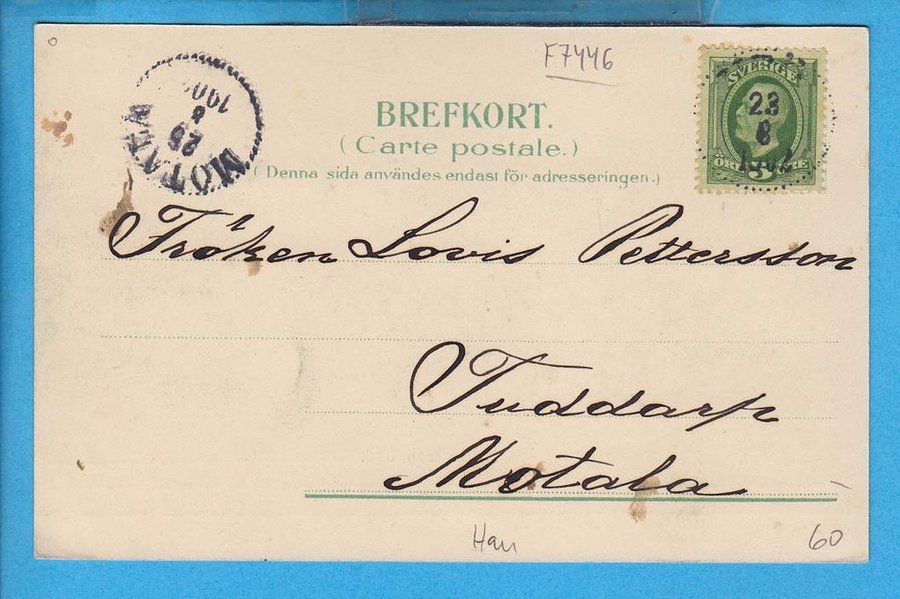 F7446
SVERIGE
23
8
1902
5
MOTALA
29
8
190
BREFKORT.
(Carte postale.)
(Denna sida användes endast för adresseringen.)
Fröken Lovis Pettersson
Tuddarp
Motala
Han
60